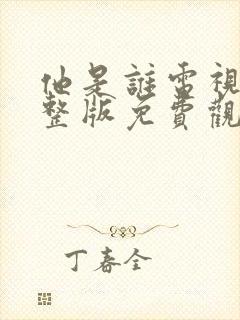 他是誰電視
整版免費觀
丁春全